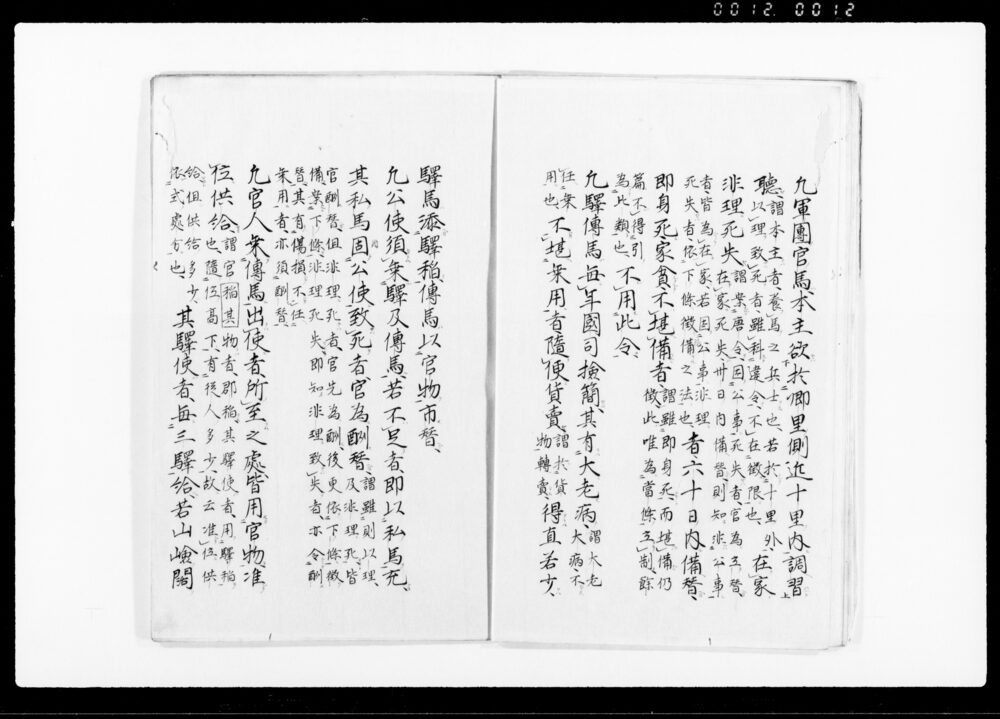 0012 0012
凢軍團官馬本主欲於郷里側近十里内調習
聽謂本主者養馬之兵士也若於十里外
以理致死者雖科違令不在徴限也在家
非理死失謂案唐令因公事死失者官為立替
在家死失卅日内備替則知非公事
者皆為在家若因公事非理
死失者依下條徴備之法也者六十日内備替
即身死家貧不堪備者謂雖即身死而堪備仍
徴此唯為當條立制餘
篇不得引
為此類也不用此令
凢驛傳馬毎年國司撿簡其有大老病謂大老
大病不
任乗
用也不堪乗用者隨便貨賣謂於貨
物轉賣得直若少
驛馬添驛稲傳馬以官物市替
凢公使須乗驛及傳馬若不足者即以私馬充
其私馬因公使致死者官為酬替謂雖則以理
及非理死皆
官酬替但非理死者官先為酬後更依下條徴
備案下條非理死失即知非理致失者亦令酬
替其有傷損不任
乗用者亦須酬替
凢官人乗傳馬出使者所至之處皆用官物准
位供給謂官稲其物者郡稲其驛使者用驛稲
也隨位高下有従人多少故云准位供
給但供給多少
依式處分也其驛使者毎三驛給若山嶮闊